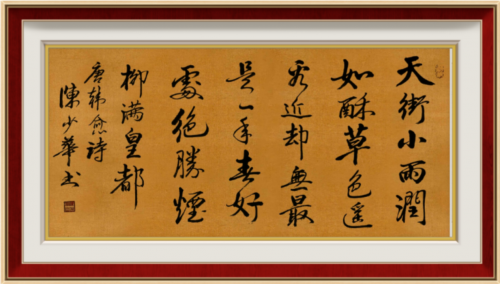 天街小雨潤
如酥草色遥
看近却無最
是一年春好
處絶勝煙
柳满皇都
唐韩愈诗
陳少華书